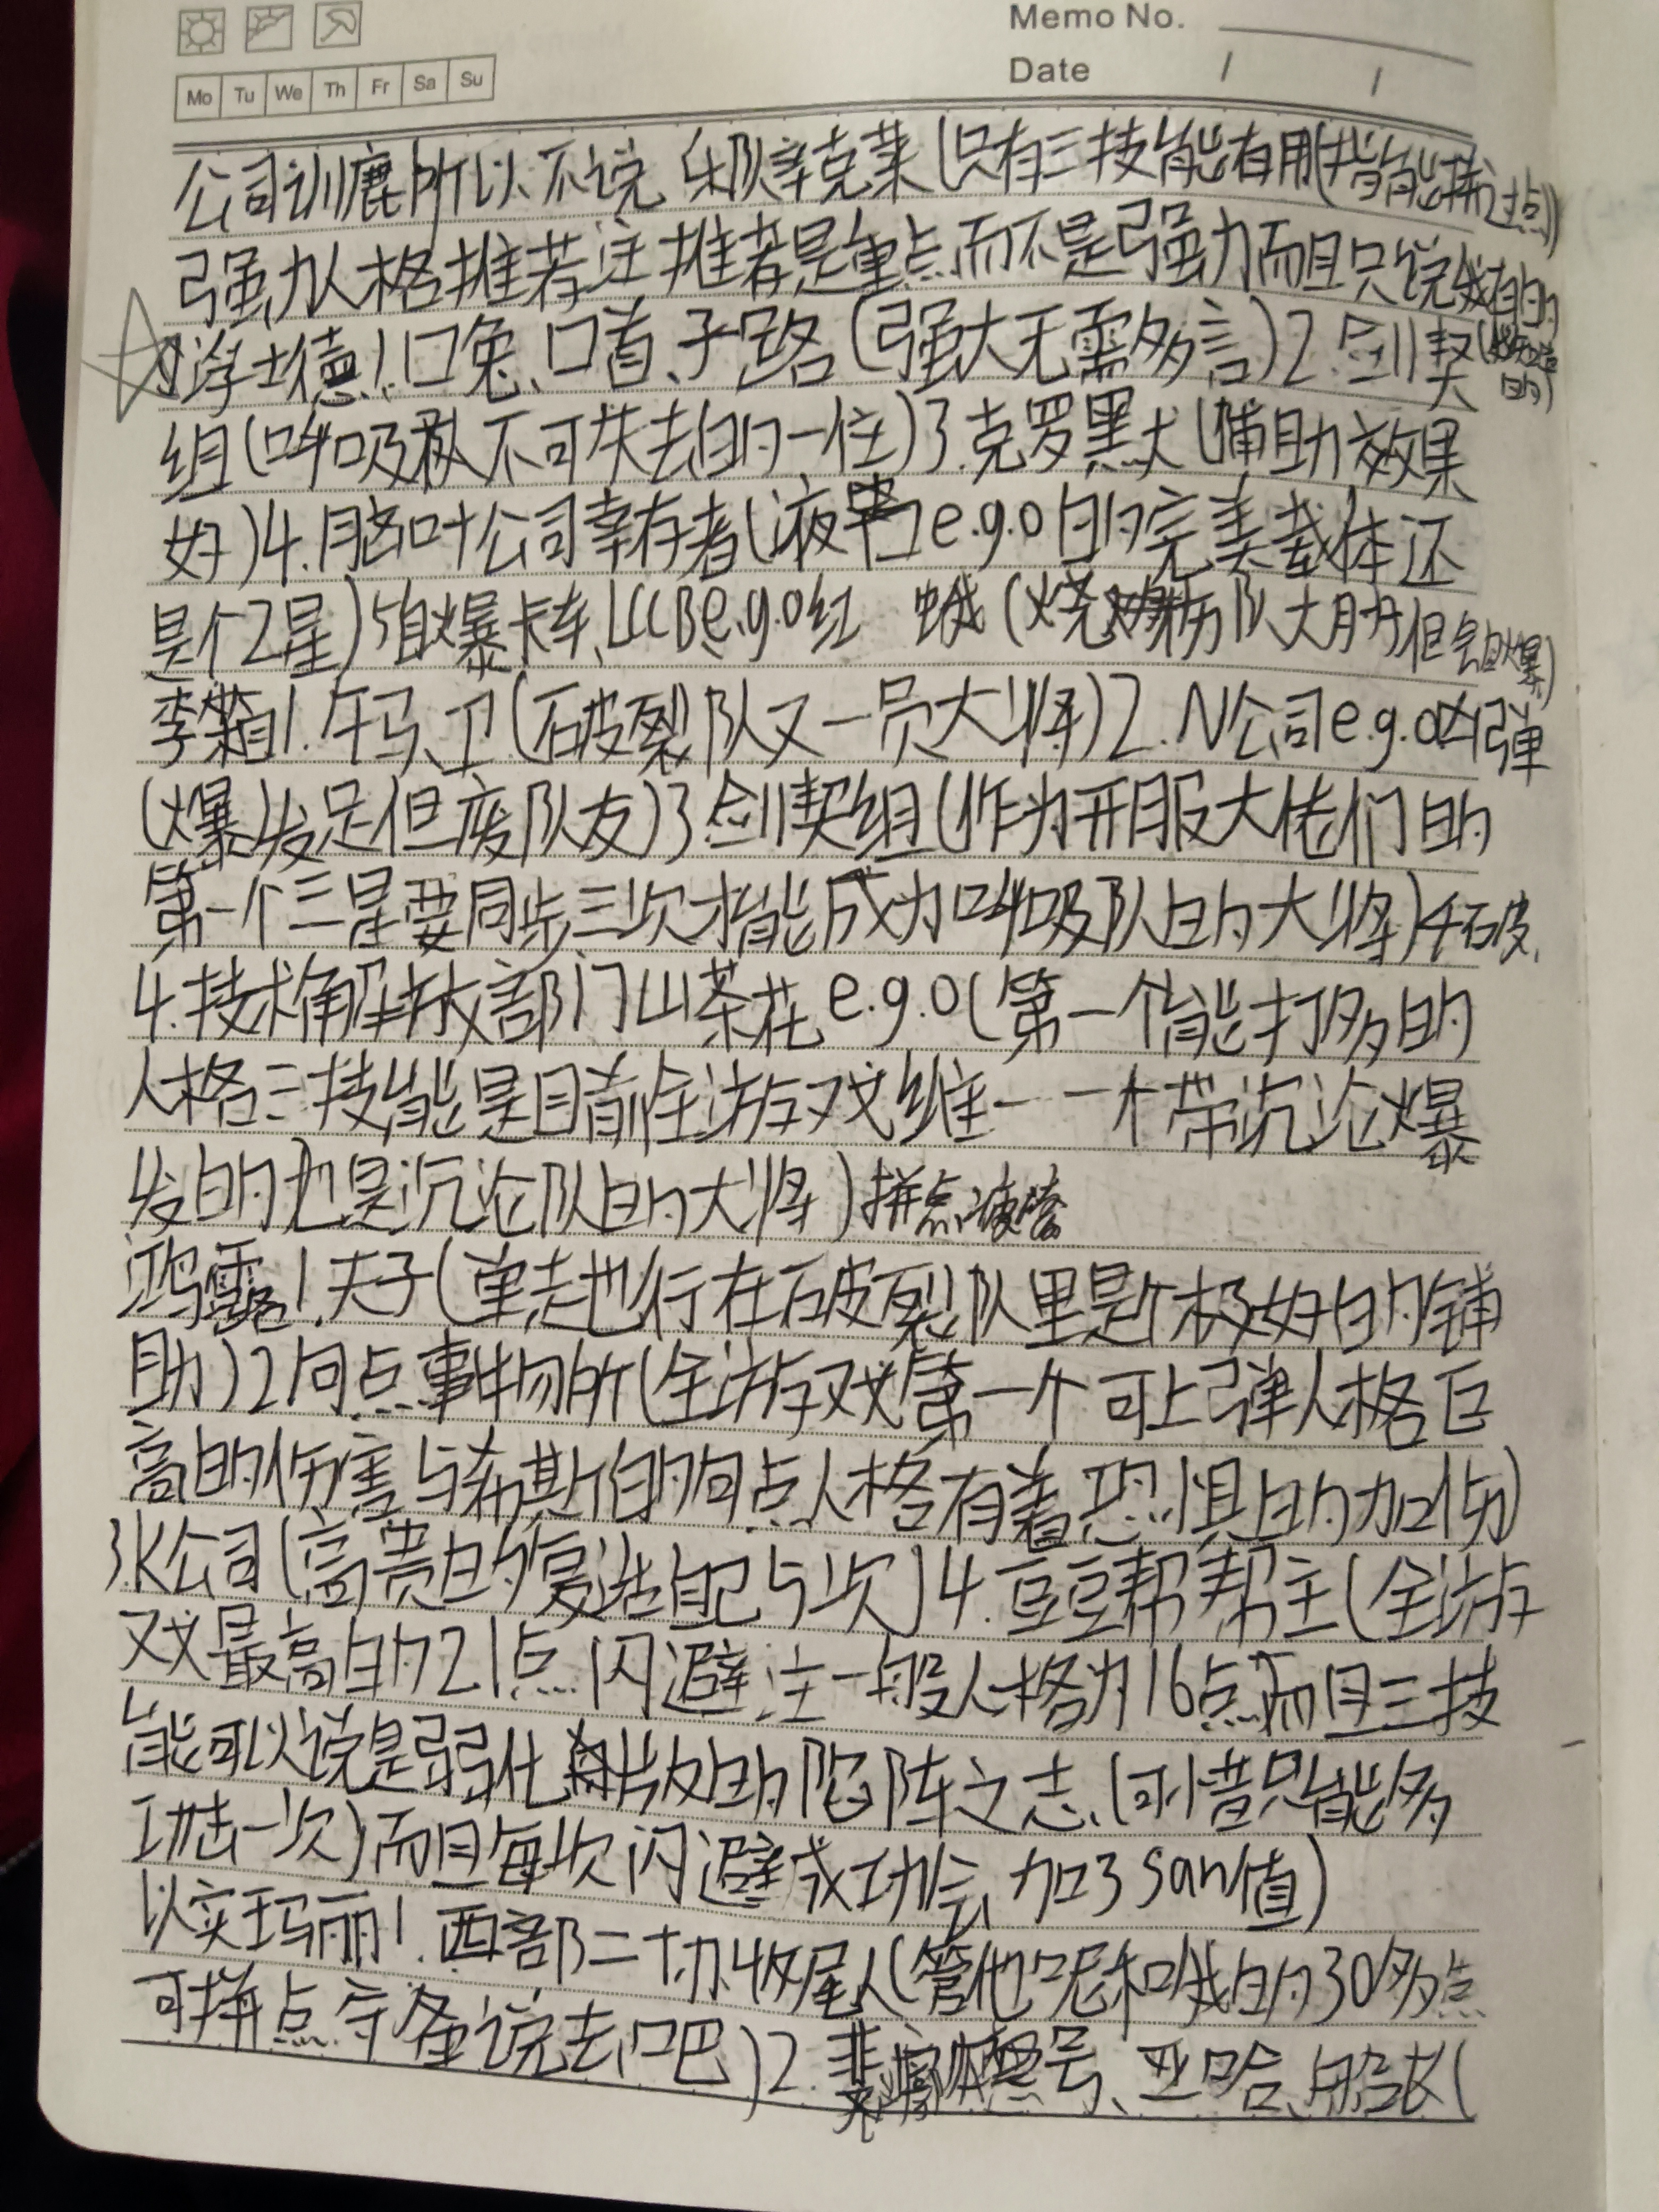 Memo No.
Date / /
Mo Tu We Th Fr Sa Su
公司训鹿所以不说 辛克莱(只有三技能有用(指能拼过点))
强力人格推荐注推荐是重点而不是强力而且只说我有的
浮士德1.口兔、口首、子路(强大无需多言)2.剑契
组(呼吸队不可失去的一位)3.克罗黑犬(辅助效果
好)4.脑叶公司幸存者(液袋e.g.o的完美载体还
是个2星)5自爆卡车、LCCB e.g.o红 蛾(烧伤队大月丹但会自爆)
李箱1.午马卫(破裂队又一员大将)2.N公司e.g.o凶弹
(爆发足但废队友)3.剑契组(作为开服大佬们的
第一个三星要同步三次才能成为呼吸队的大将)
4.技术解放部门山茶花e.g.o(第一个能打多的
人格三技能是目前全游戏维一一个带沉沦爆
发的也是沉沦队的大将)拼点疲惫
鸿露1.夫子(单走也行在破裂队里是个极好的铺
助)2何点事物所(全游戏第一个可上弹人格巨
高的伤害与希斯的何点人格有着恐惧的加伤)
3.K公司(高贵的复活自己5次)4.豆豆帮帮主(全游
戏最高的21点闪避注一般人格为16点而且三技
能可以说是弱化版的陷阵之志、(可惜只能多
攻击一次)而且每次闪避成功会加3san值)
以实玛丽1.西部二十办收尾人(管他呢和我的30多点
可拼点守备说去吧)2.裴廓德号、亚哈、船长(